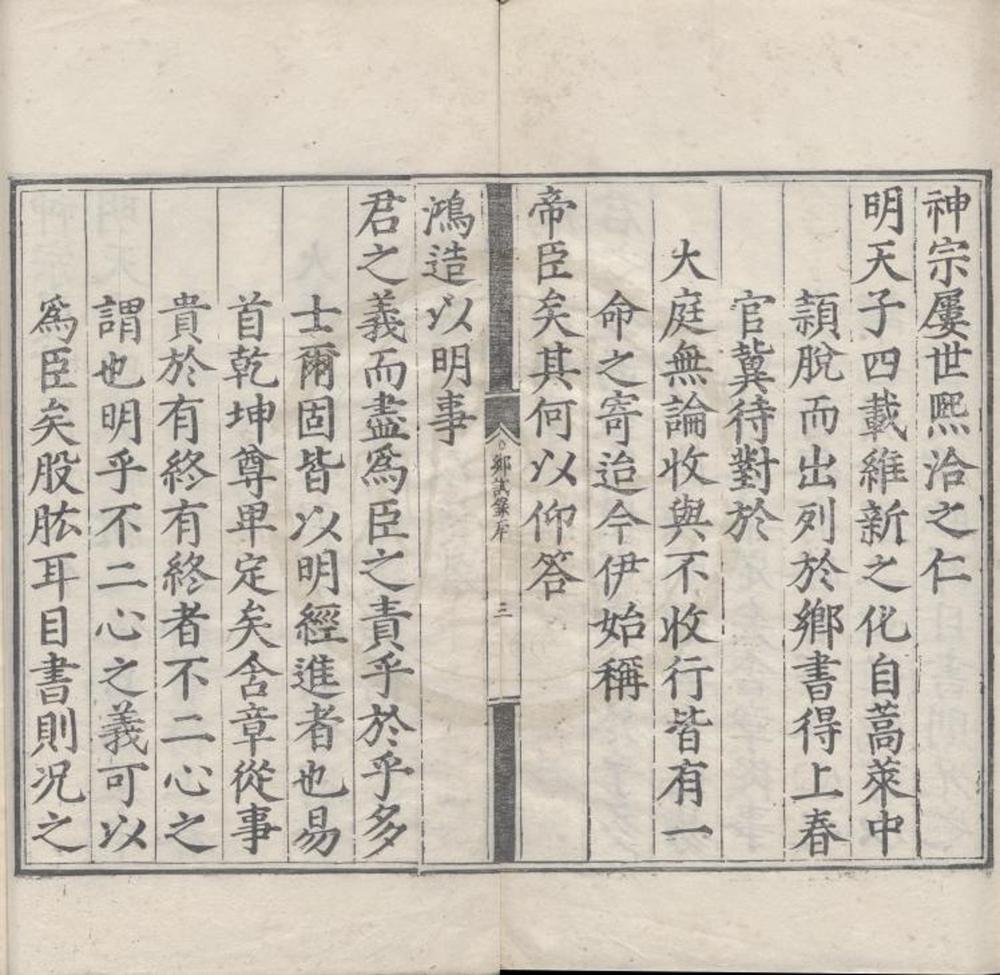 神宗屢世熈洽之仁
明天子四載維新之化自蒿萊中
頴脫而出列於鄉書得上春
官冀待對於
大庭無論收與不收行皆有一
命之寄迨今伊始稱
帝臣矣其何以仰答
鄉試錄序
三
鴻造以明事
君之義而盡爲臣之責乎於乎多
士爾固皆以明經進者也易
首乾坤尊卑定矣含章從事
貴於有終有終者不二心之
謂也明乎不二心之義可以
爲臣矣股肱耳目書則况之